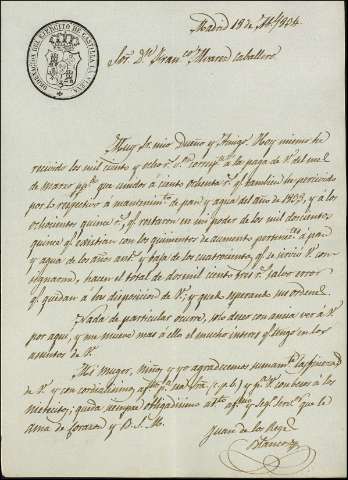 ORDENACION DEL EJERCITO DE CASTILLA LA NUEVA
Madrid 18 de 1804
Sor. Dn. Franco. Alvarez Caballero
Muy Sr. mio Dueño y Amigo. Hoy mismo he
recivido los mil ciento y ocho rs. vn. a la paga de V. del mes
de Marzo que unidos á ciento ochenta rs. qe. tambien he percivido
por lo respectivo á de pan y agua del año de 1803, y á los
ochocientos quince rs. qe. restaron en mi poder de los mil doscientos
quince qe. existian con los quinientos de aumento á pan
y agua de los años y baja de los cuatrocientos qe. se sirvió V.
consignarme, hacen el total de dos mil ciento tres rs. salvo error
qe. quedan á la disposicion de V. y qe. esperando su orden.
Nada de particular ocurre, solo deseo con ansia ver á V.
por aqui, y me mueve mas á ello el mucho interes qe. tengo en los
asuntos de V.
Mi Muger, Niños y yo agradecemos las finezas
de V. y con cordialisimo (c. p. b.) y
queda siempre obligadisimo y Segro. Servr. que le
ama de Corazon y B. S. M.
Juan de los Reyes
Blanco